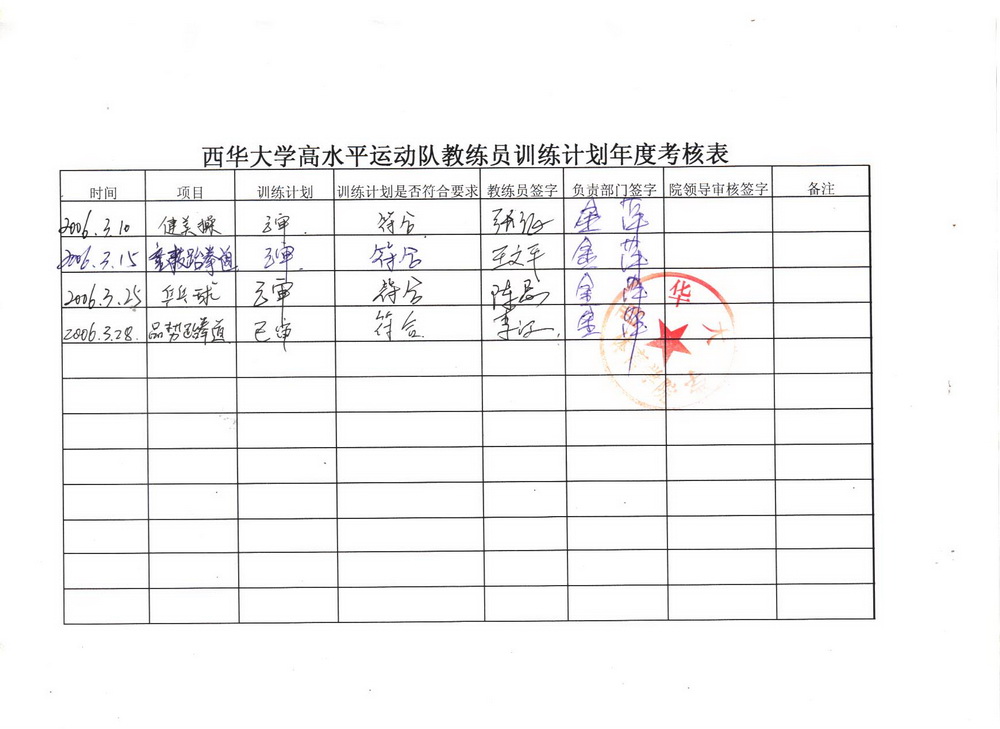 西华大学高水平运动队教练员训练计划年度考核表
时间 项目 训练计划 训练计划是否符合要求 教练员签字 负责部门签字 院领导审核签字 备注
2006.3.10 健美操 已审 符合
2006.3.15 跆拳道 已审 符合 王文平
2006.3.25 乒乓球 已审 符合 陈
2006.3.28 品势跆拳道 已审 符合 李
华 大 学